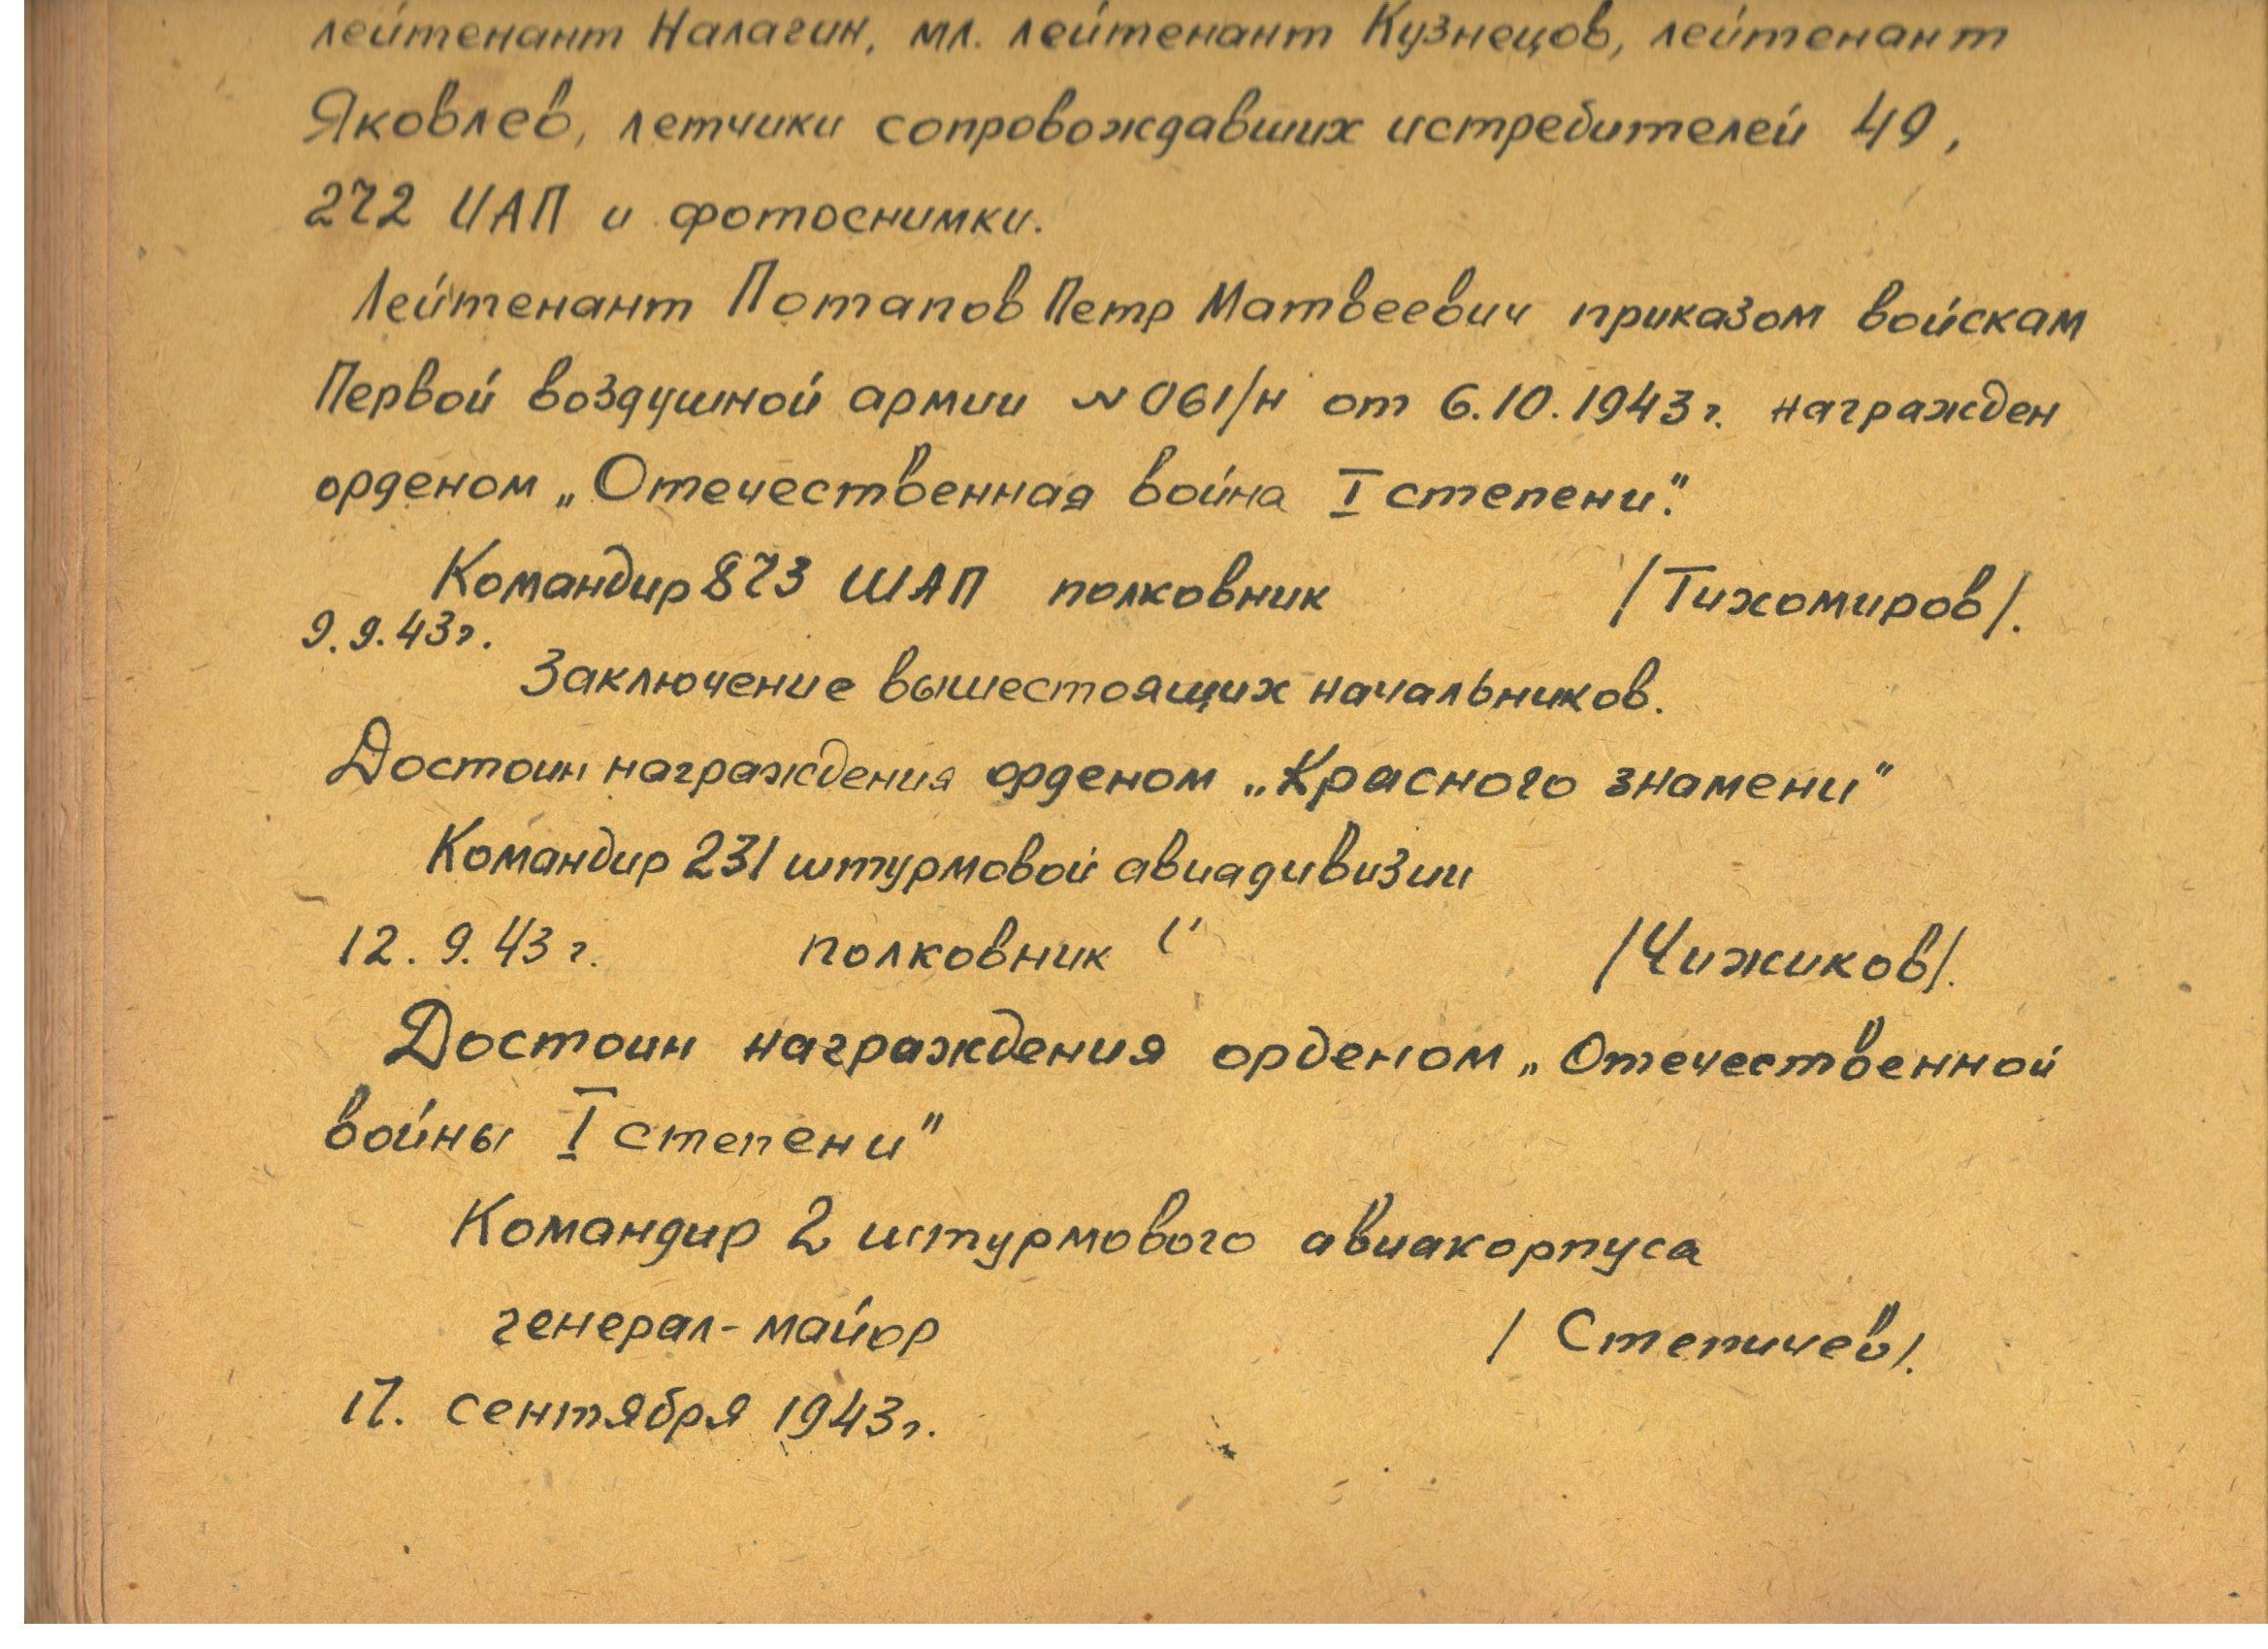 лейтенант Налагин, мл. лейтенант Кузнецов, лейтенант
Яковлев, летчики сопровождавших истребителей 49,
272 ИАП и фотоснимки.
Лейтенант Потапов Петр Матвеевич приказом войскам
Первой воздушной армии № 061/н от 6.10.1943г. награжден
орденом „Отечественная война I степени".
Командир 873 ШАП полковник /Тихомиров/.
9.9.43г.
Заключение вышестоящих начальников.
Достоин награждения орденом „Красного знамени"
Командир 231 штурмовой авиадивизии
12.9.43г. полковник /Чижиков/.
Достоин награждения орденом „Отечественной
войны I степени"
Командир 2 штурмового авиакорпуса
генерал-майор /Степичев/.
17. сентября 1943г.